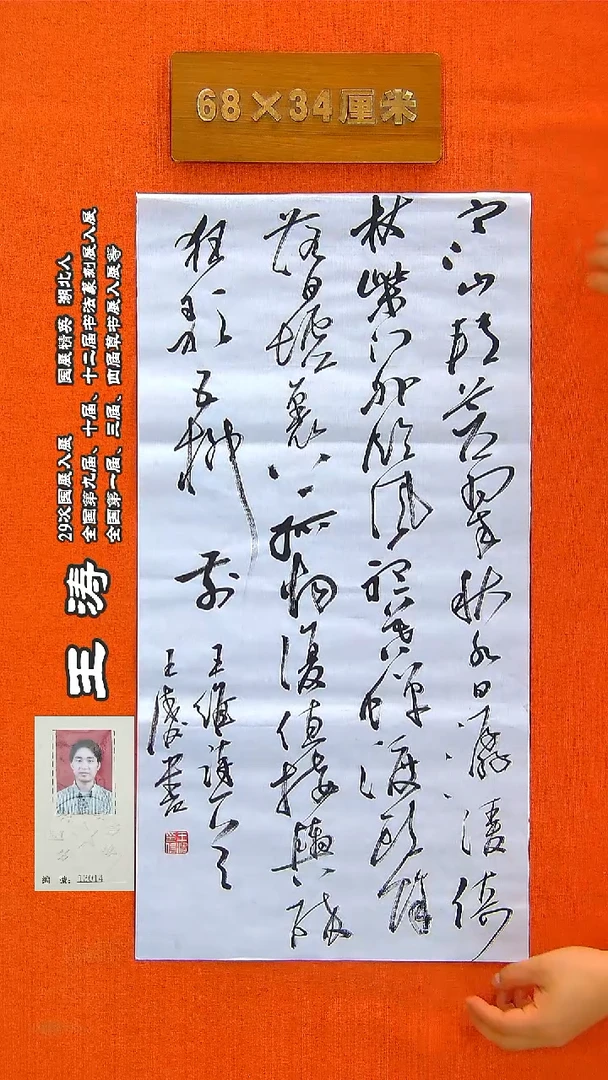 68×34厘米
寒山轉蒼翠秋水日潺湲倚
杖柴门外临风聽暮蝉渡頭餘
落日墟里上孤烟復值接輿醉
狂歌五柳前
王維詩
王涛书
29次国展入展 国展精英 湖北人
全国第九届、十届、十二届书法篆刻展入展
全国第一届、三届、四届草书展入展等
王涛
编号：12014